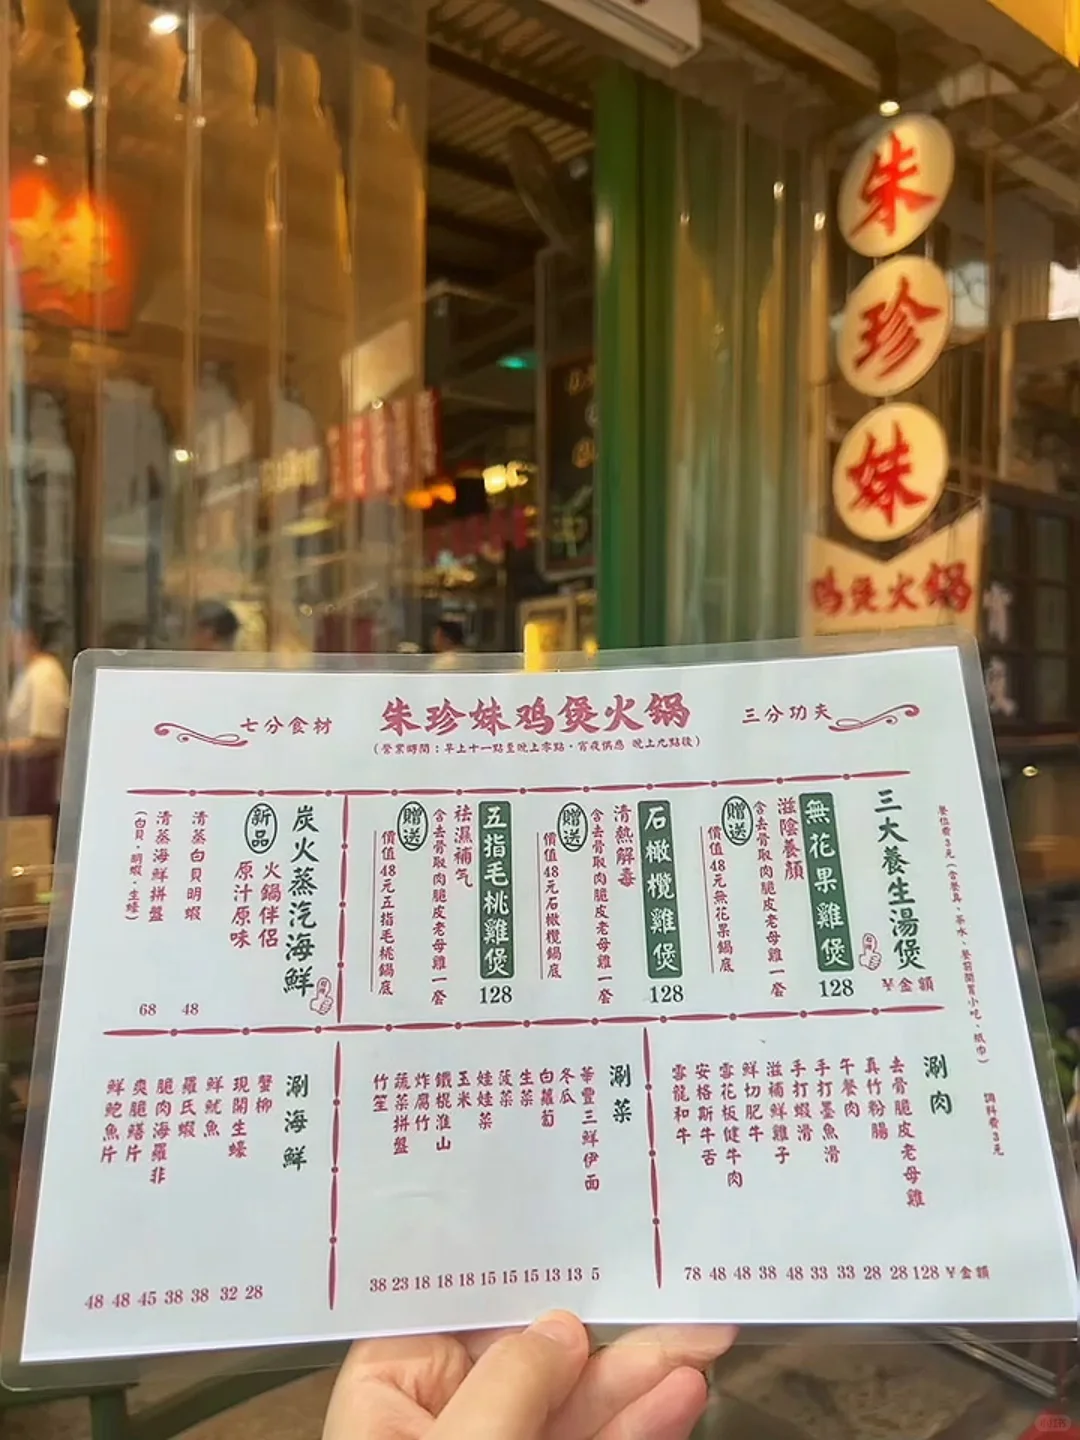 朱
珍
妹
鸡煲火锅
七分食材
朱珍妹鸡煲火锅
三分功夫
(營業時間：早上十一點至晚上零點·宵夜供應 晚上九點後)
餐位費3元(含餐具、茶水、餐前開胃小吃、紙巾)
調料費3元
三大養生湯煲
¥金額
無花果雞煲
128
滋陰養顏
含去骨取肉脆皮老母雞一套
贈送
價值48元無花果鍋底
石橄欖雞煲
128
清熱解毒
含去骨取肉脆皮老母雞一套
贈送
價值48元石橄欖鍋底
五指毛桃雞煲
128
祛濕補气
含去骨取肉脆皮老母雞一套
贈送
價值48元五指毛桃鍋底
炭火蒸汽海鮮
新品
火鍋伴侶
原汁原味
清蒸白貝明蝦
48
清蒸海鮮拼盤
(白貝·明蝦·生蠔)
68
涮肉
¥金額
去骨脆皮老母雞
128
真竹粉腸
28
午餐肉
28
手打墨魚滑
33
手打蝦滑
33
滋補鮮雞子
48
鮮切肥牛
38
雪花板健牛肉
48
安格斯牛舌
48
雪龍和牛
78
涮菜
華豐三鮮伊面
5
冬瓜
13
白蘿蔔
13
生菜
15
菠菜
15
娃娃菜
15
玉米
18
鐵棍淮山
18
炸腐竹
18
蔬菜拼盤
23
竹笙
38
涮海鮮
蟹柳
28
現開生蠔
32
鮮魷魚
38
羅氏蝦
38
脆肉海羅非
45
爽脆鱔片
48
鮮鮑魚片
48